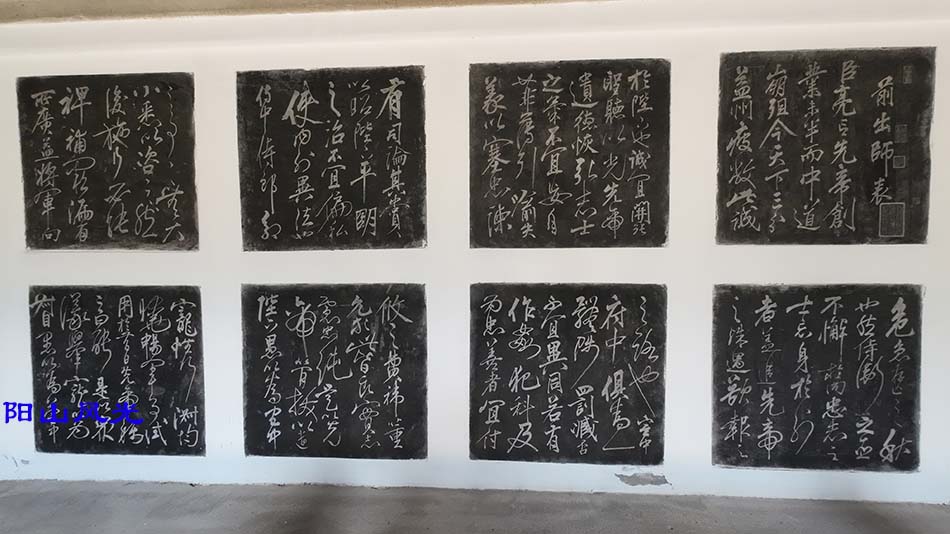 前出師表
臣亮言先帝創
業未半而中道
崩殂今天下三分
益州疲敝此誠
危急存亡之秋
也然侍衛之臣
不懈於内忠志之
士忘身於外
者蓋追先帝
之殊遇欲報之
於陛下也誠宜開張
聖聽以光先帝
遺德恢弘志士
之氣不宜妄自
菲薄引喻失
義以塞忠諫
之路也宮中
府中俱為一
體陟罰臧否
不宜異同若有
作姦犯科及
為忠善者宜付
有司論其刑賞
以昭陛下平明
之治不宜偏私
使内外異法也
侍中侍郎郭
攸之費禕董
允等此皆良實志
慮忠純是以先
帝簡拔以遺
陛下愚以為宮中
之事事無大
小悉以咨之然
後施行必能
裨補闕漏有
所廣益將軍向
寵性行淑均
曉暢軍事試
用於昔日先帝稱
之曰能是以衆
議舉寵為
督愚以為營中
阳山风光